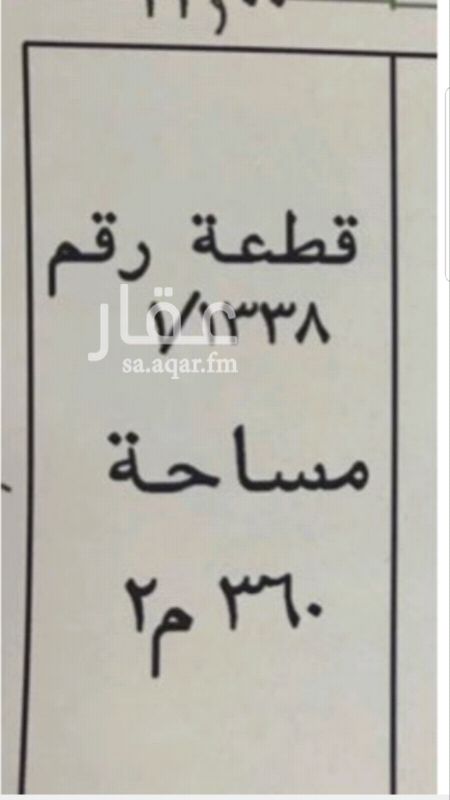 قطعة رقم
١/١٣٣٨
عقار
sa.aqar.fm
مساحة
٣٦٠ م٢